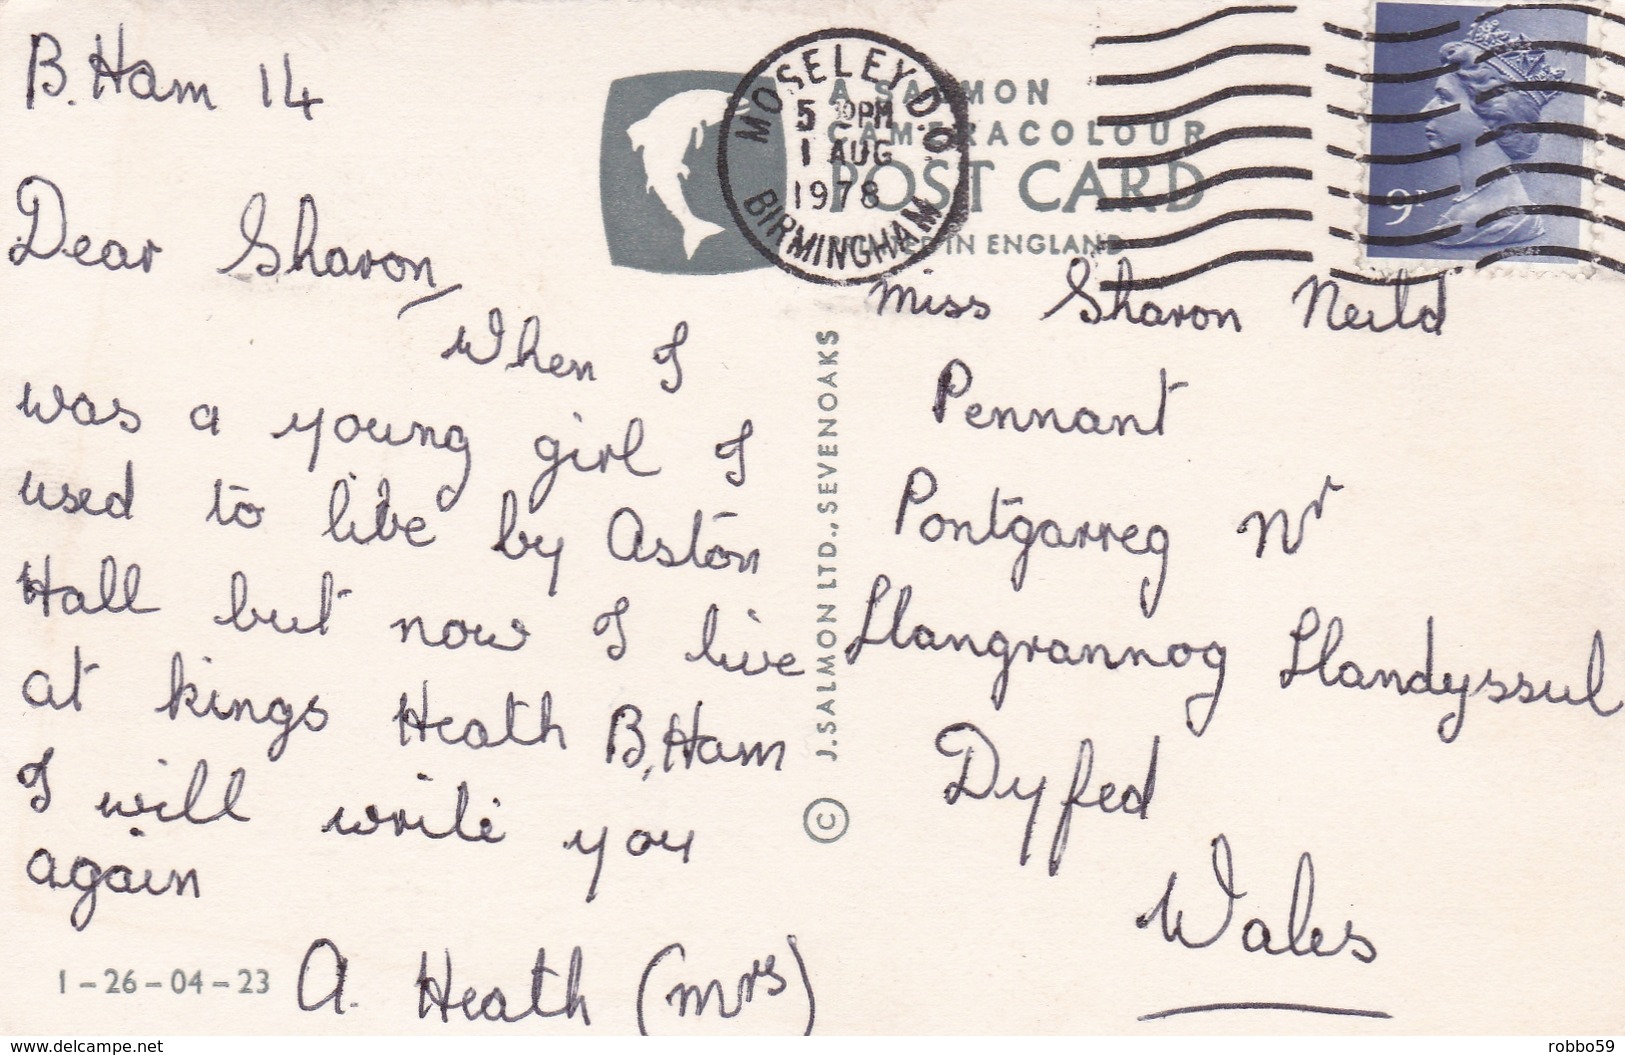 B.Ham 14
Dear Sharon,
When I
was a young girl I
used to live by Aston
Hall but now I live
at kings Heath B.Ham
I will write you
again
A. Heath (mrs)
1-26-04-23
A SALMON
CAMERACOLOUR
POST CARD
IN ENGLAND
MOSELEY D.O
5 PM
1 AUG
1978
BIRMINGHAM
9P
© J.SALMON LTD., SEVENOAKS
miss Sharon Neild
Pennant
Pontgarreg nr
Llangrannog Llandyssul
Dyfed
Wales
www.delcampe.net
robbo59